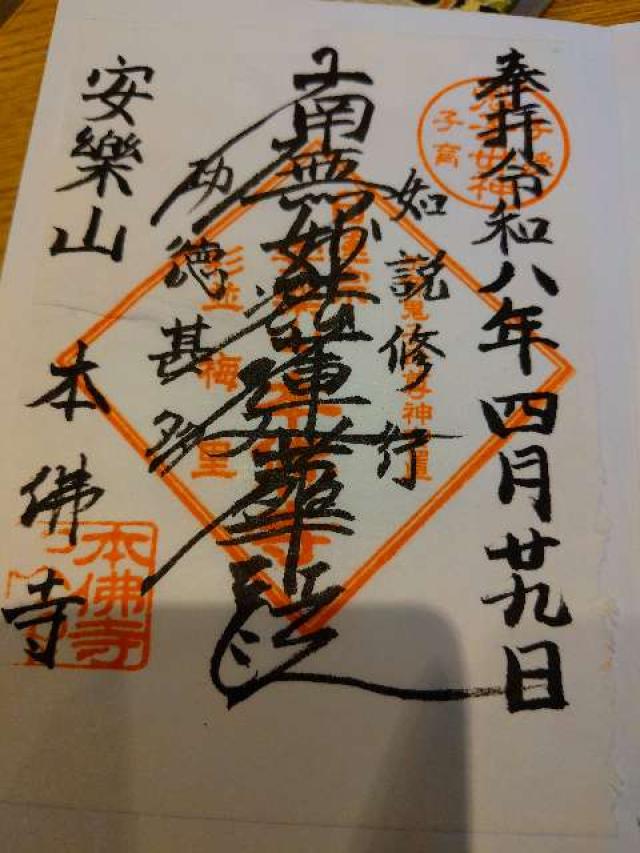 奉拝令和八年四月廿九日
子育
如説修行
南無妙法蓮華経
功徳甚多
杉並
梅里
安樂山
本佛寺
本佛寺